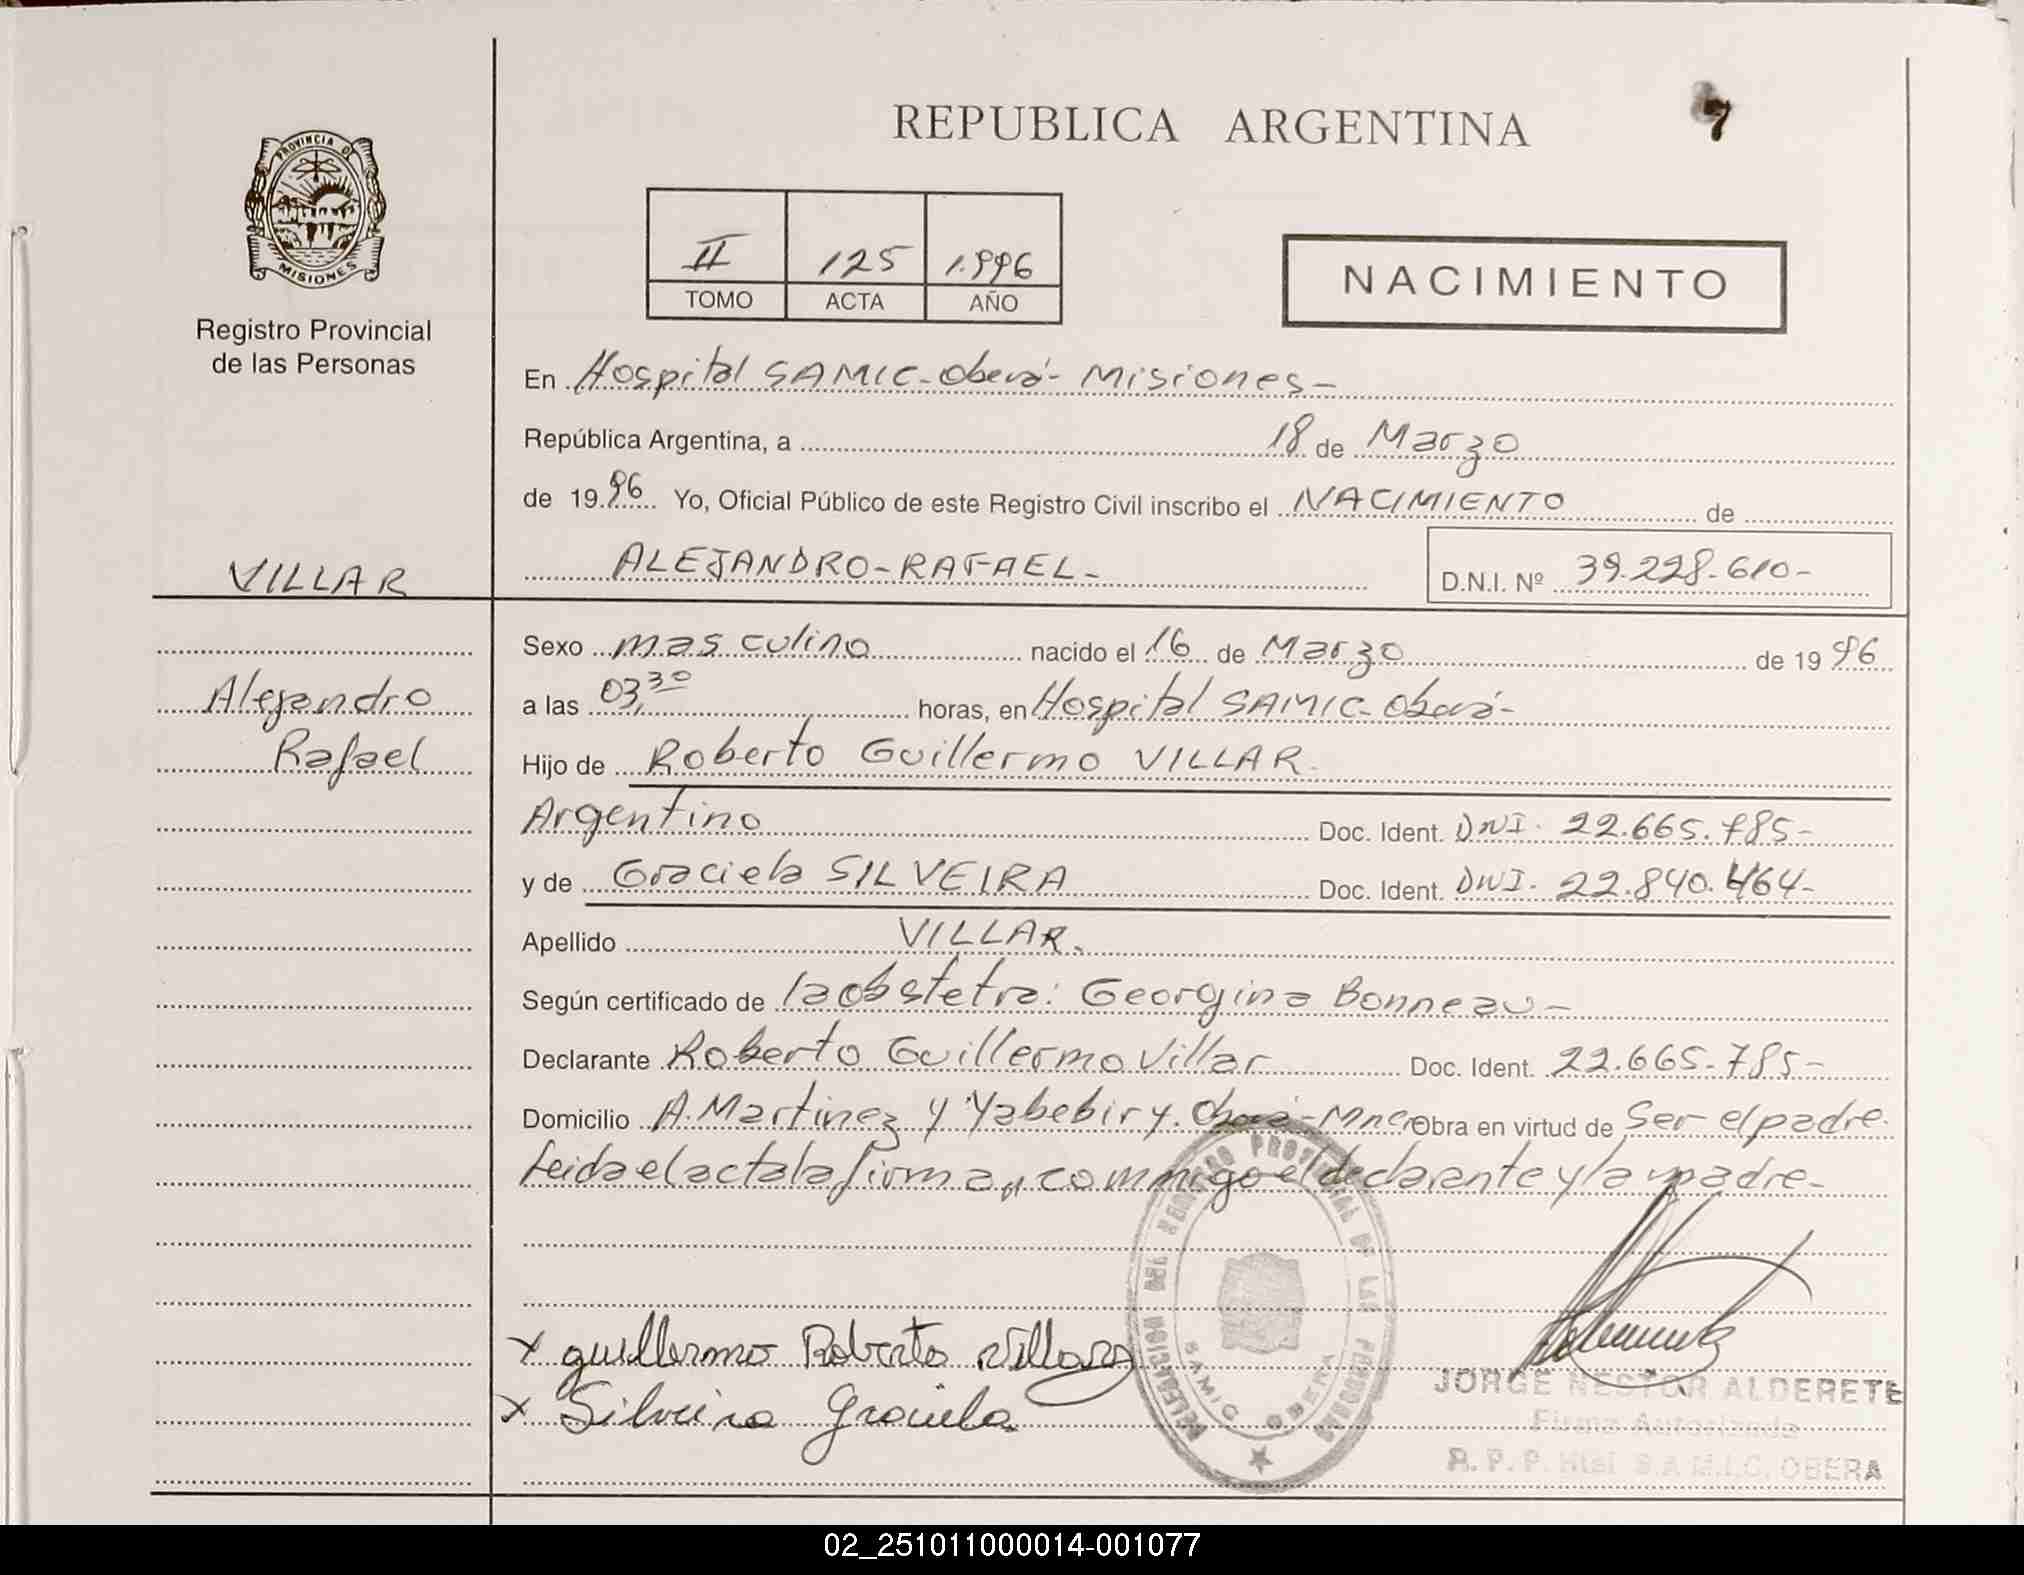 REPUBLICA ARGENTINA
7
PROVINCIA DE
MISIONES
Registro Provincial
de las Personas
II 125 1.996
TOMO ACTA AÑO
NACIMIENTO
En Hospital SAMIC-Oberá- Misiones-
República Argentina, a 18 de Marzo
de 1996 Yo, Oficial Público de este Registro Civil inscribo el NACIMIENTO de
VILLAR
ALEJANDRO-RAFAEL-
D.N.I. Nº 39.228.610-
Alejandro
Rafael
Sexo masculino nacido el 16 de Marzo de 1996
a las 03,30 horas, en Hospital SAMIC-Oberá-
Hijo de Roberto Guillermo VILLAR.
Argentino Doc. Ident. DNI. 22.665.785-
y de Graciela SILVEIRA Doc. Ident. DNI. 22.840.464-
Apellido VILLAR.
Según certificado de la obstetra: Georgina Bonneau-
Declarante Roberto Guillermo Villar Doc. Ident. 22.665.785-
Domicilio A. Martinez y Yabebiry. Oberá-Mnes Obra en virtud de Ser el padre.
Leida el acta la firman, conmigo el declarante y la madre-
DELEGACION DEL REGISTRO PROVINCIAL DE LAS PERSONAS
SAMIC OBERA
x guillermo Roberto Villar
x Silveira Graciela
JORGE NESTOR ALDERETE
Firma Autorizada
R. P. P. Htal S.A.M.I.C. OBERA
02_251011000014-001077